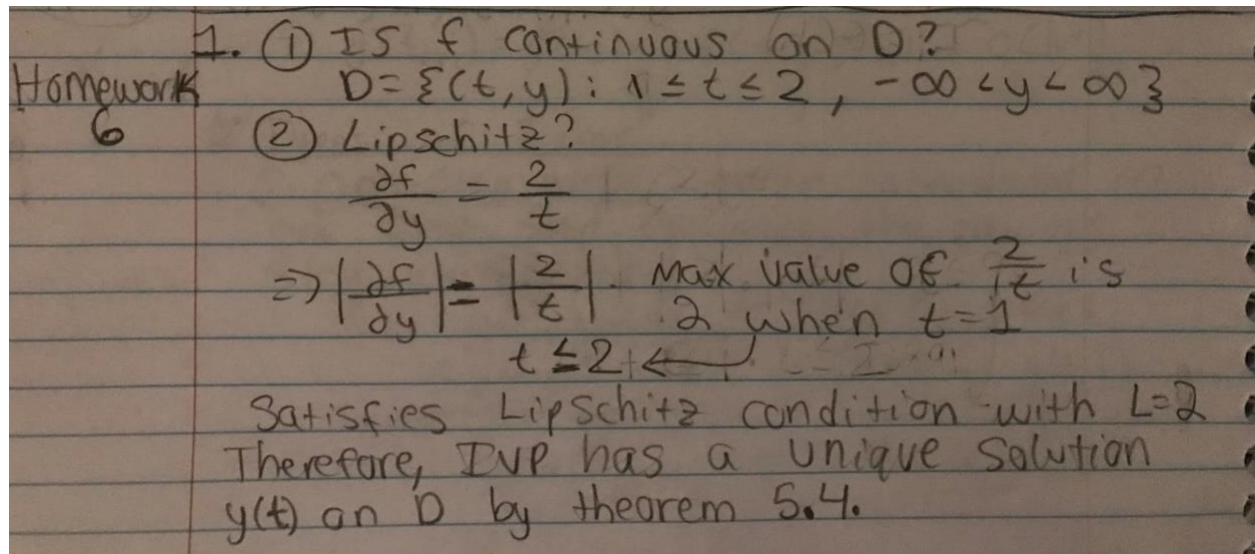 1. ① Is f continuous on D?
Homework 6
D = {(t, y) : 1 ≤ t ≤ 2, -∞ < y < ∞}
② Lipschitz?
∂f/∂y = 2/t
=> |∂f/∂y| = |2/t|. Max value of 2/t is
2 when t=1
t ≤ 2 ←
Satisfies Lipschitz condition with L=2
Therefore, IVP has a unique solution
y(t) on D by theorem 5.4.